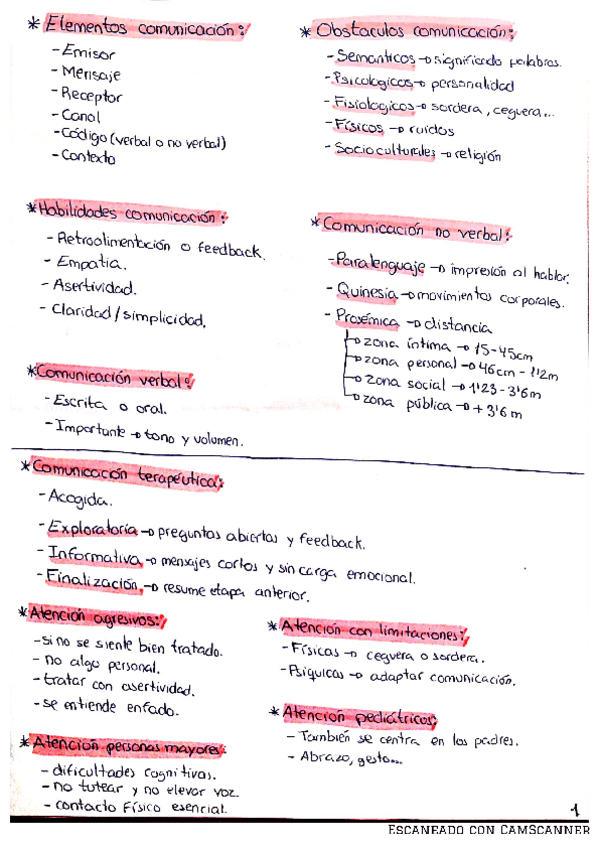 * Elementos comunicación:
- Emisor
- Mensaje
- Receptor
- Canal
- Código (verbal o no verbal)
- Contexto
* Obstaculos comunicación:
- Semanticos → significando palabras.
- Psicologicos → personalidad
- Fisiologicos → sordera, ceguera...
- Físicos → ruidos
- Socioculturales → religión
* Habilidades comunicación:
- Retroalimentación o feedback.
- Empatia.
- Asertividad.
- Claridad / simplicidad.
* Comunicación no verbal:
- Paralenguaje → impresión al hablar.
- Quinesia → movimientos corporales.
- Proxémica → distancia
→ zona íntima → 15-45cm
→ zona personal → 46cm - 1'2m
→ zona social → 1'23 - 3'6m
→ zona pública → + 3'6m
* Comunicación verbal:
- Escrita o oral.
- Importante → tono y volumen.
* Comunicación terapéutica:
- Acogida.
- Exploratoria → preguntas abiertas y feedback.
- Informativa → mensajes cortos y sin carga emocional.
- Finalización → resume etapa anterior.
* Atención agresivos:
- si no se siente bien tratado.
- no algo personal.
- tratar con asertividad.
- se entiende enfado.
* Atención con limitaciones:
- Físicas → ceguera o sordera.
- Psiquicas → adaptar comunicación.
* Atención pediátricos:
- También se centra en los padres.
- Abrazo, gesto...
* Atención personas mayores:
- dificultades cognitivas.
- no tutear y no elevar voz.
- contacto físico esencial.
1
ESCANEADO CON CAMSCANNER